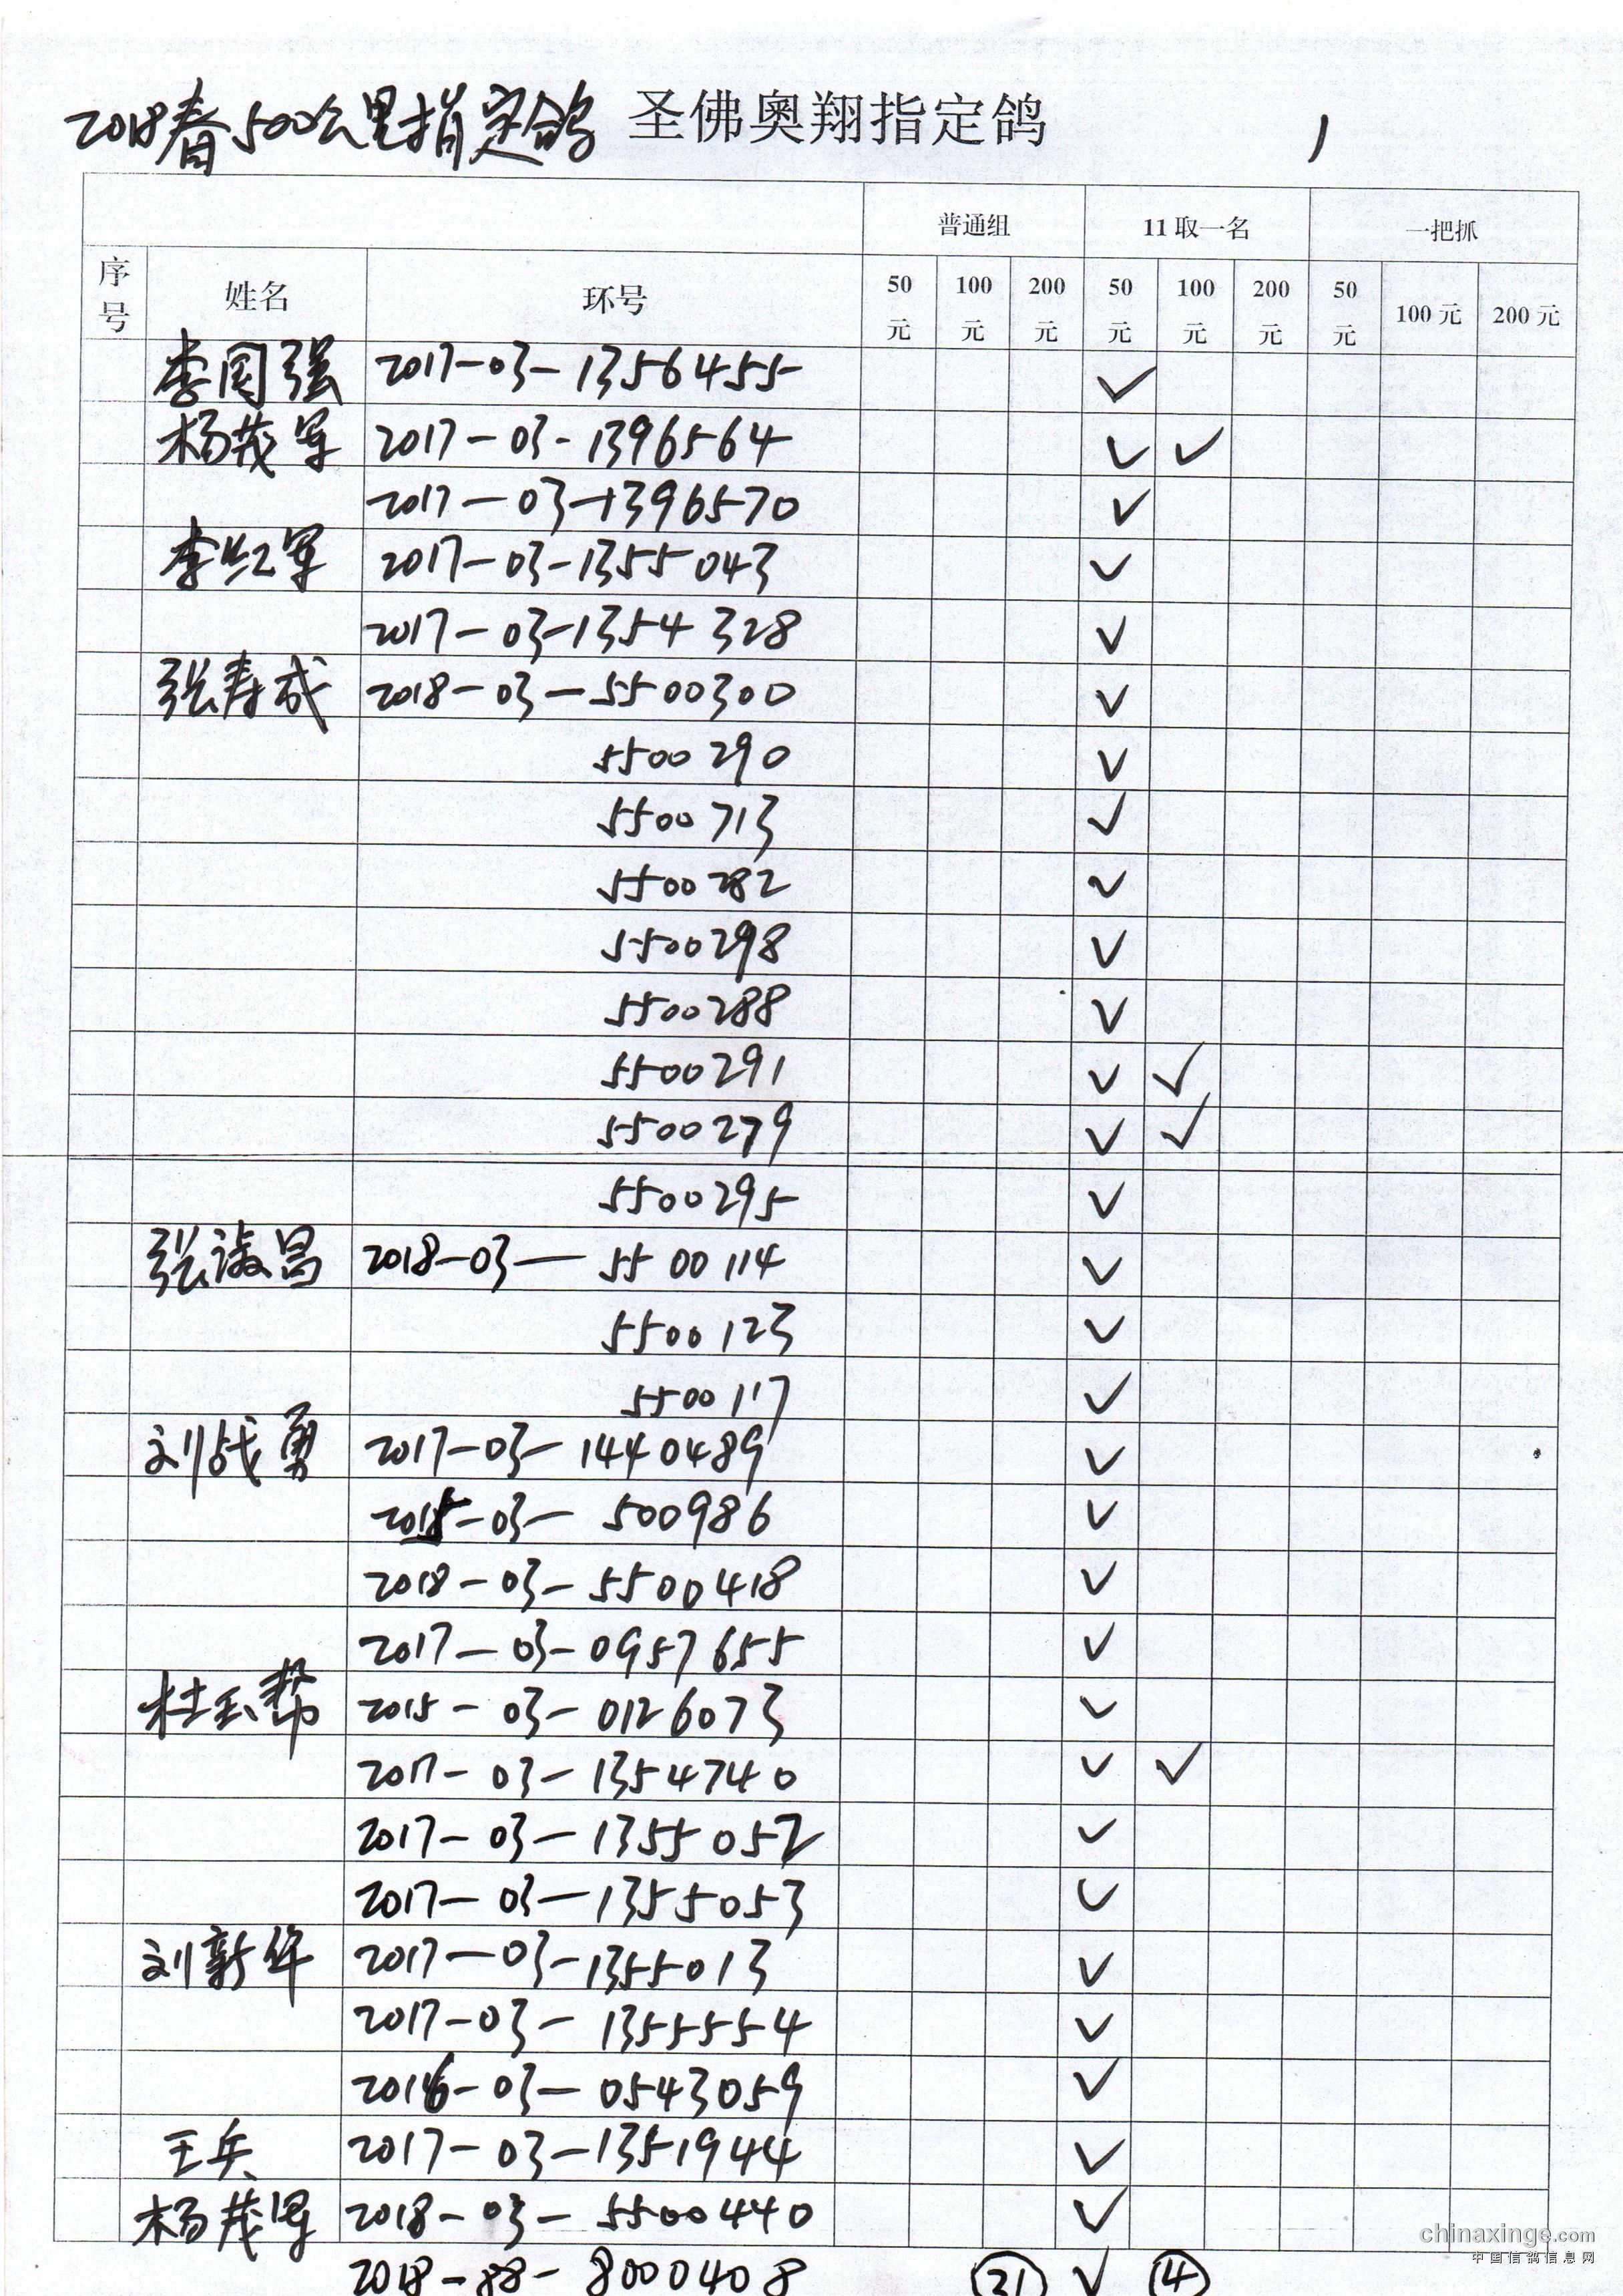 2018春500公里指定鸽 圣佛奥翔指定鸽 1
普通组 11取一名 一把抓
序号 姓名 环号 50元 100元 200元 50元 100元 200元 50元 100元 200元
李国强 2017-03-1356455 ✓
杨茂军 2017-03-1396564 ✓ ✓
2017-03-1396570 ✓
李红军 2017-03-1355043 ✓
2017-03-1354328 ✓
张寿成 2018-03-5500300 ✓
5500290 ✓
5500713 ✓
5500282 ✓
5500298 ✓
5500288 ✓
5500291 ✓ ✓
5500279 ✓ ✓
5500295 ✓
张淑昌 2018-03-5500114 ✓
5500123 ✓
5500117 ✓
刘战勇 2017-03-1440489 ✓
2015-03-500986 ✓
2018-03-5500418 ✓
2017-03-0957655 ✓
杜玉帮 2015-03-0126073 ✓
2017-03-1354740 ✓ ✓
2017-03-1355052 ✓
2017-03-1355053 ✓
刘新年 2017-03-1355013 ✓
2017-03-1355554 ✓
2016-03-0543059 ✓
王兵 2017-03-1351944 ✓
杨茂 2018-03-5500440 ✓
2018-88-8000408 31 ✓ 4
chinaxinge.com
中国信鸽信息网